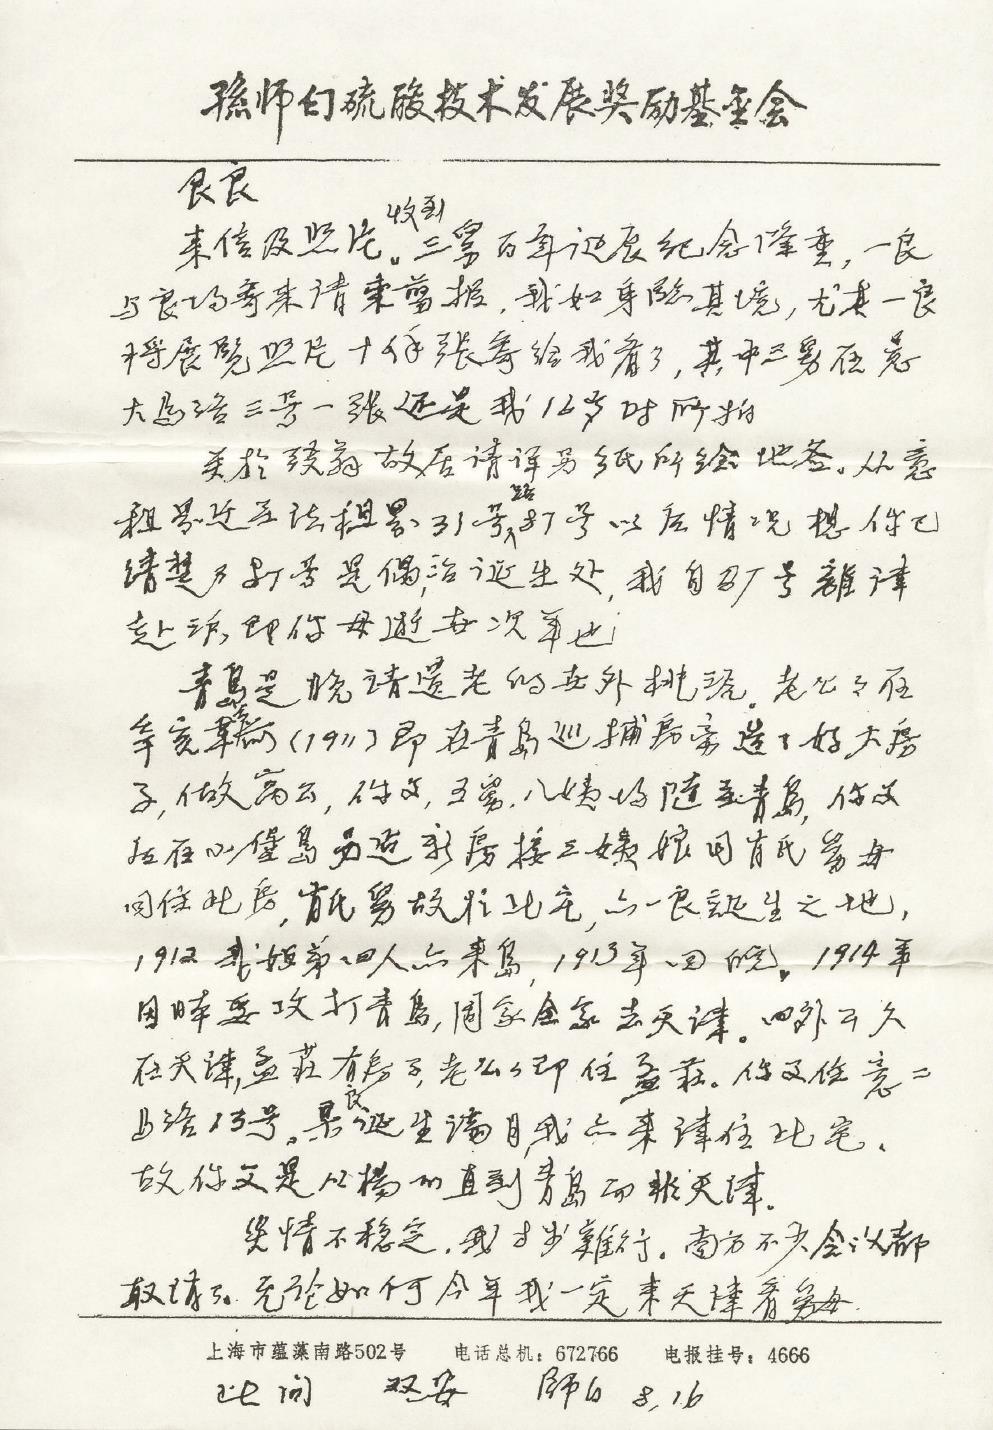 孫师白硫酸技术发展奖励基金会
良良
来信及照片收到。三舅百年诞辰纪念隆重，一良
与良均寄来请柬剪报，我如身临其境，尤其一良
将展览照片十余张寄给我看了，其中三舅在意
大马路三号一张还是我12岁时所拍
关於 故居请详另纸所绘地 。从意
租界迁至法租界31号路 号以后情况想你已
清楚 号是 诞生处，我自 号離津
赴沪，即你母逝世次年也
青島是晚清遗老的世外桃源。老公公在
辛亥 (1911)即在青島巡捕房旁造了好大房
子，做寓公，你父，五舅，八姨均随至青島，你父
后在 堡島另造新房接三姨娘同 舅母
同住此房， 舅故於此宅，亦一良誕生之地，
1912我姐弟四人亦来島，1913年回皖。1914年
因日本要攻打青島，周家全家去天津。四外公久
在天津，孟莊有房子，老公公即住孟莊。你父住意二
马路13号。杲良诞生满月，我亦来津住此宅、
故你父是从揚州直到青島而非天津。
癸情不稳定，我寸步難行。南方不少会议都
取消了。无论如何今年我一定来天津看舅母
上海市蕴藻南路502号 电话总机：672766 电报挂号：4666
此问 双安 師白 8,16